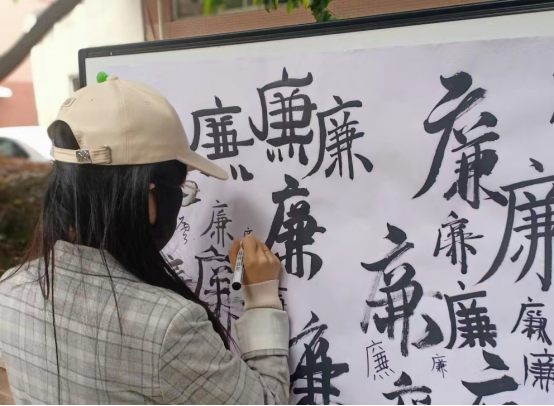 廉 廉 廉 廉
廉 廉 廉 廉
廉 廉 廉 廉
廉 廉 廉 廉